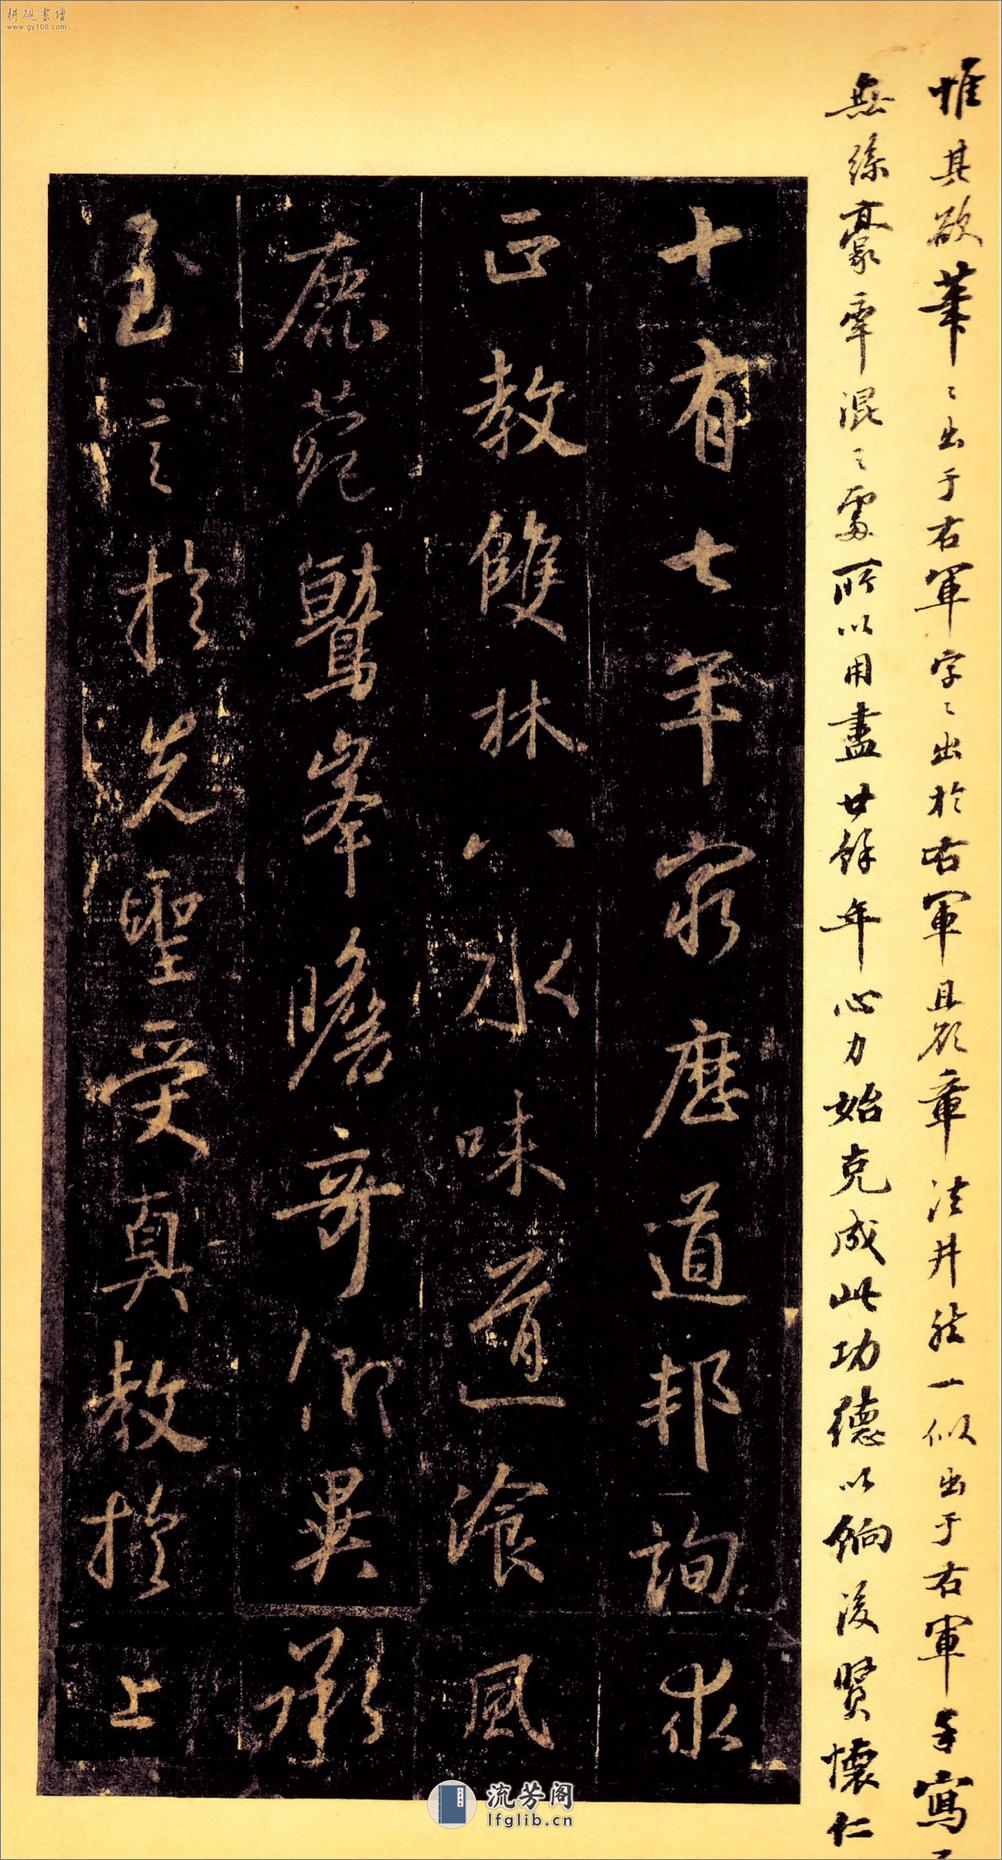 耕砚书坛
www.gy108.com
惟其欲筆〻出于右軍字〻出於右軍且於章法井然一似出于右軍手寫
無絲豪牽混〻處所以用盡廿餘年心力始克成此功德以餉後賢懷仁
十有七年窮歷道邦詢求
正教雙林八水味道飡風
鹿菀鷲峯瞻奇仰異承
至言於先聖受真教於上
流芳阁
lfglib.cn